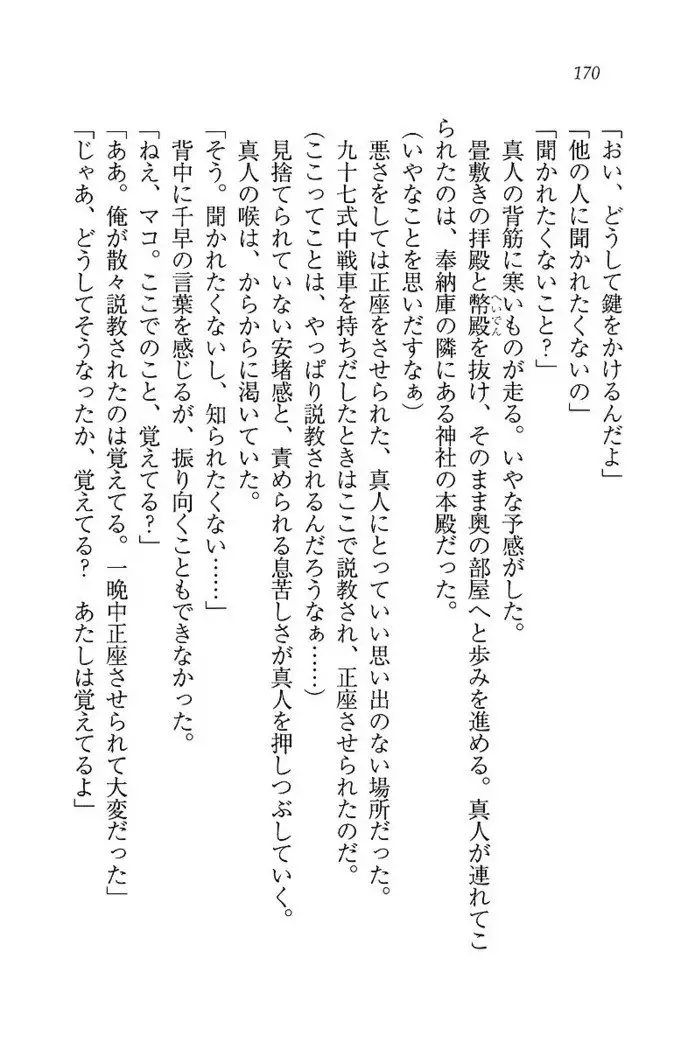 170
「おい、どうして鍵をかけるんだよ」
「他の人に聞かれたくないの」
「聞かれたくないこと?」
真人の背筋に寒いものが走る。いやな予感がした。
畳敷きの拝殿と幣殿へいでんを抜け、そのまま奥の部屋へと歩みを進める。真人が連れてこ
られたのは、奉納庫の隣にある神社の本殿だった。
(いやなことを思いだすなぁ)
悪さをしては正座をさせられた、真人にとっていい思い出のない場所だった。
九十七式中戦車を持ちだしたときはここで説教され、正座させられたのだ。
(ここってことは、やっぱり説教されるんだろうなぁ……)
見捨てられていない安堵感と、責められる息苦しさが真人を押しつぶしていく。
真人の喉は、からからに渇いていた。
「そう。聞かれたくないし、知られたくない……」
背中に千早の言葉を感じるが、振り向くこともできなかった。
「ねえ、マコ。ここでのこと、覚えてる?」
「ああ。俺が散々説教されたのは覚えてる。一晩中正座させられて大変だった」
「じゃあ、どうしてそうなったか、覚えてる? あたしは覚えてるよ」